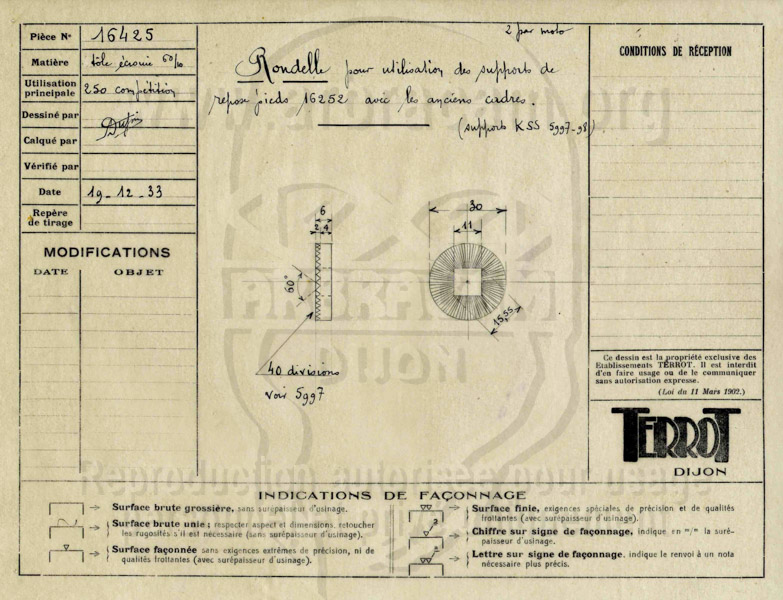 Pièce N° 16425
Matière tôle écrouie 60/10
Utilisation principale 250 compétition
Dessiné par
Calqué par
Vérifié par
Date 19-12-33
Repère de tirage
MODIFICATIONS
DATE OBJET
2 par moto
Rondelle pour utilisation des supports de
repose pieds 16252 avec les anciens cadres.
(supports KSS 5997-98)
6
2 4
60°
40 divisions
voir 5997
30
11
15,55
CONDITIONS DE RÉCEPTION
Ce dessin est la propriété exclusive des
Etablissements TERROT. Il est interdit
d'en faire usage ou de le communiquer
sans autorisation expresse.
(Loi du 11 Mars 1902.)
TERROT
DIJON
INDICATIONS DE FAÇONNAGE
Surface brute grossière, sans surépaisseur d'usinage.
Surface brute unie ; respecter aspect et dimensions, retoucher
les rugosités s'il est nécessaire (sans surépaisseur d'usinage).
Surface façonnée sans exigences extrêmes de précision, ni de
qualités frottantes (avec surépaisseur d'usinage).
Surface finie, exigences spéciales de précision et de qualités
frottantes (avec surépaisseur d'usinage).
3
Chiffre sur signe de façonnage, indique en m/m la suré-
paisseur d'usinage.
Lettre sur signe de façonnage, indique le renvoi à un nota
nécessaire plus précis.
DIJON
Reproduction autorisée pour usage